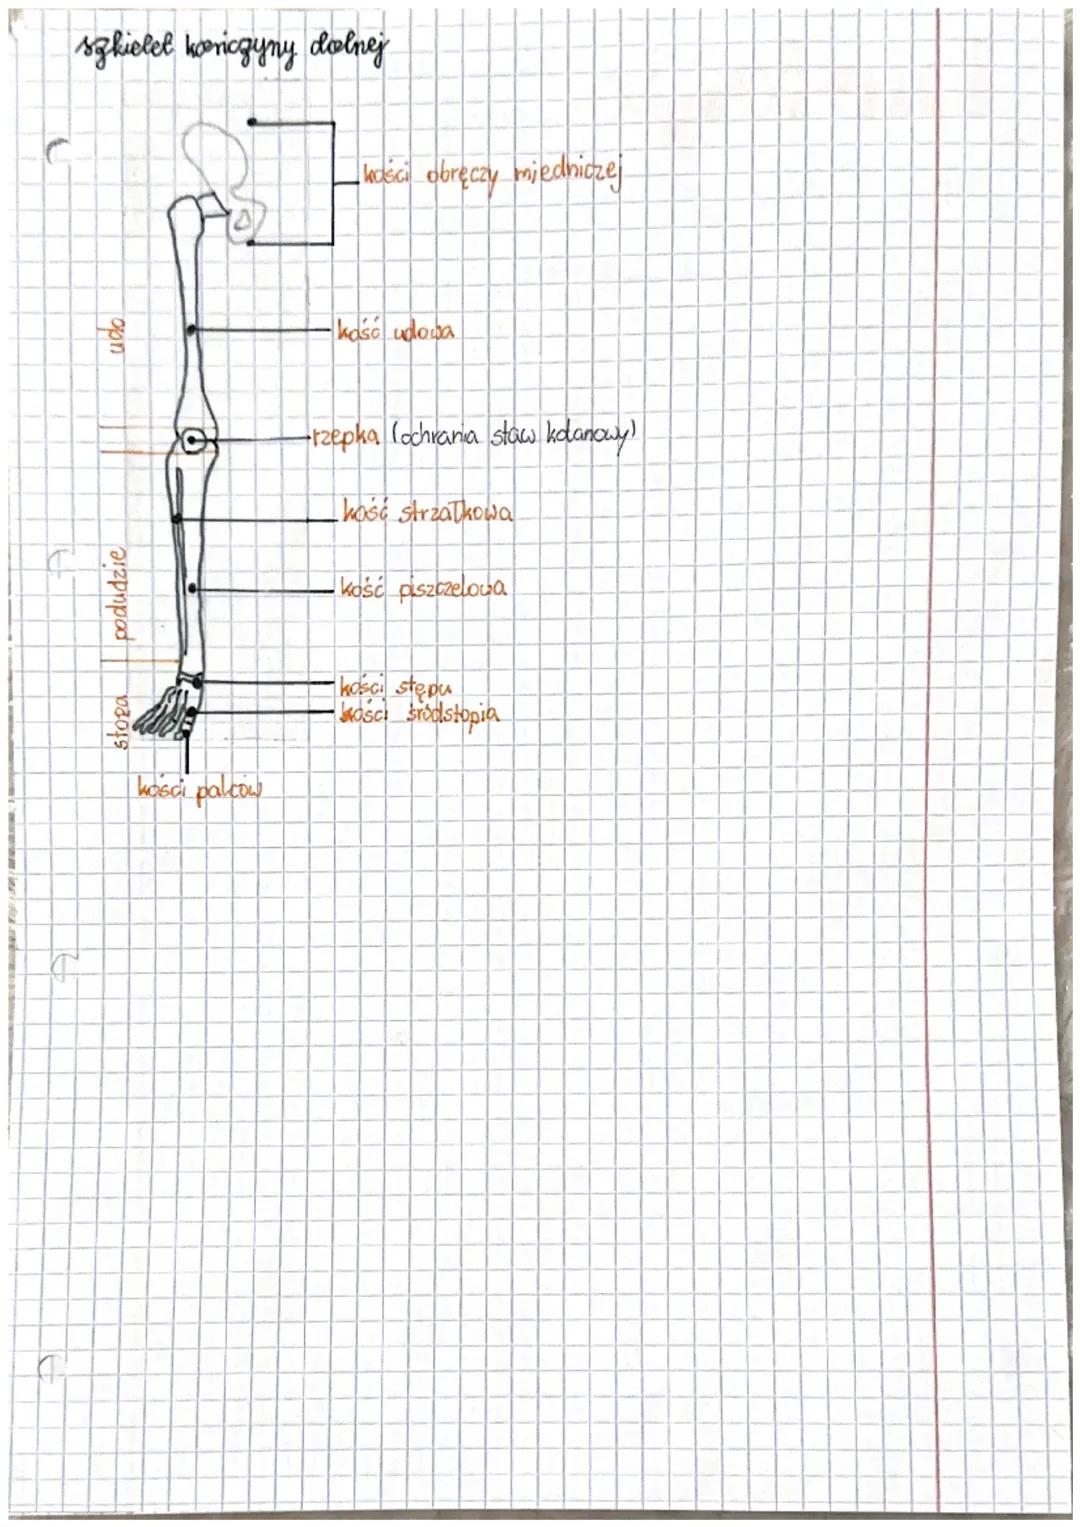 szkielet kończyny dolnej
kości obręczy miedniczej
udo
kość udowa
rzepka (ochrania staw kolanowy)
kość strzałkowa
podudzie
kość piszczelowa
kości stępu
stopa
kości śródstopia
kości palców